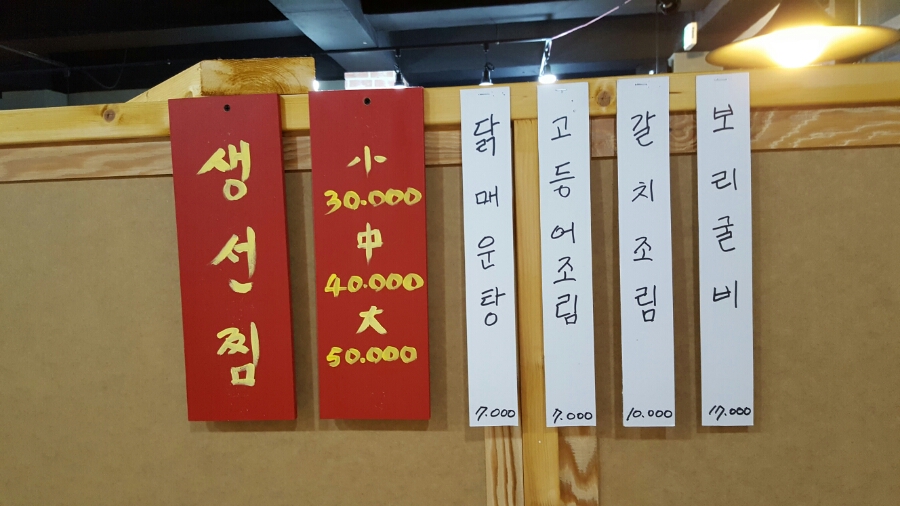 생선찜
小
30.000
中
40.000
大
50.000
닭매운탕
7.000
고등어조림
7.000
갈치조림
10.000
보리굴비
17.000